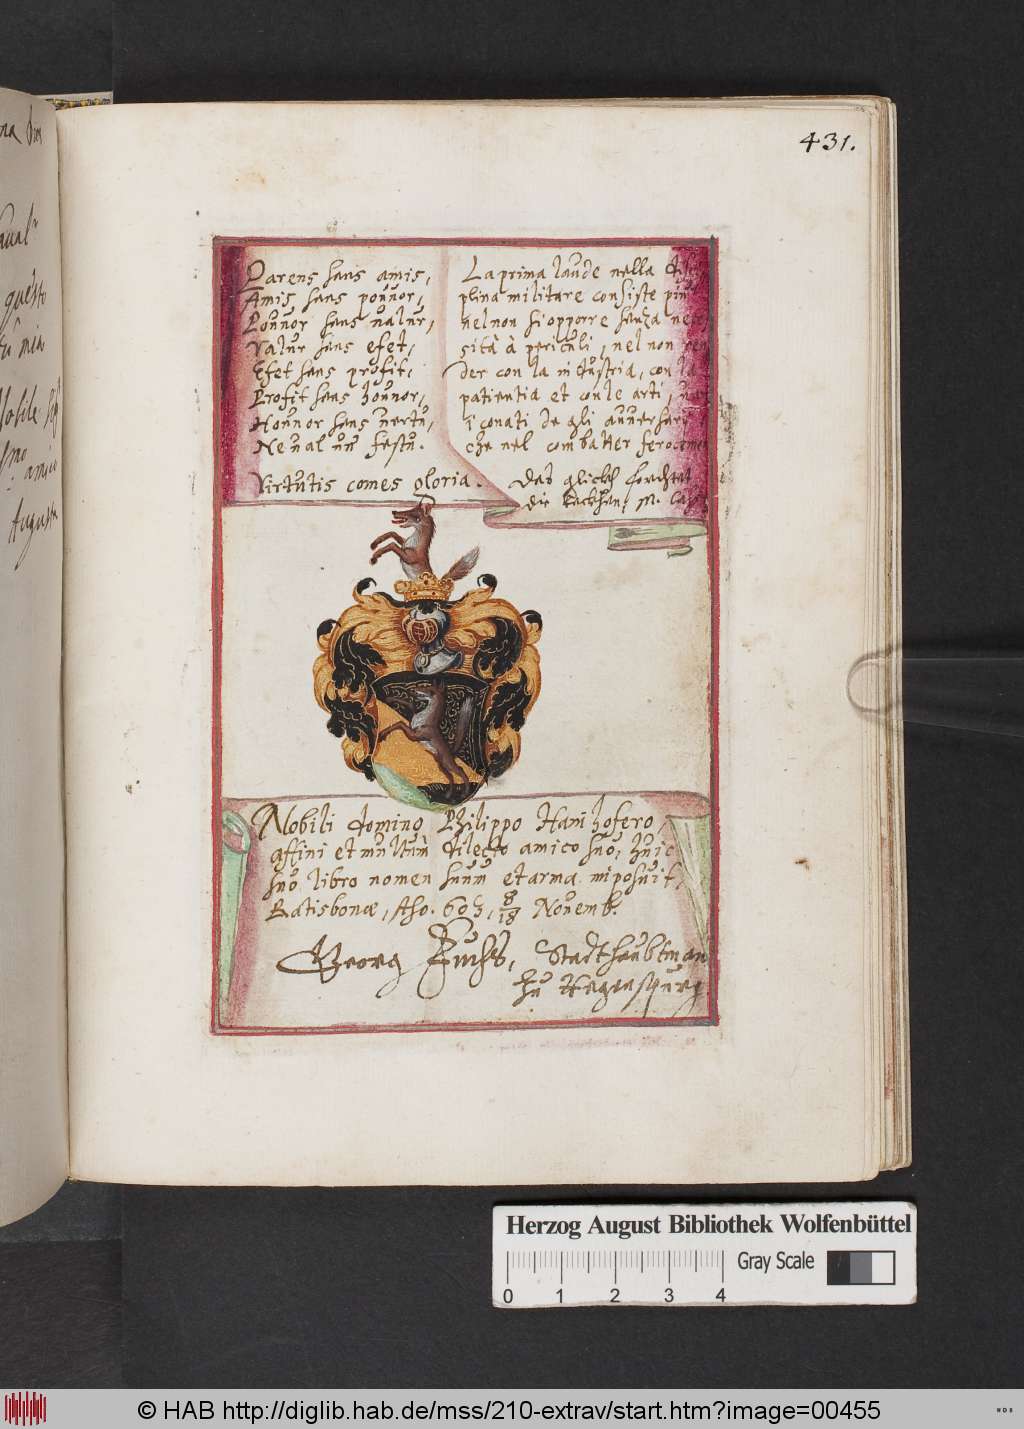 431.
Parens sans amis,
Amis sans pouuor,
Pouuor sans ualur,
Valur sans efet,
Efet sans profit,
Profit sans honnor,
Honnor sans uertu,
Ne ual un festu.
Virtutis comes gloria.
La prima laude nella
plina militare consiste piu
nel non si opporre senza
sità à periculi, nel non
der con la industria, con la
patientia et con le arti,
i conati de gli auuersarij
che nel combatter
Das glickh
die
Nobili domino Philippo Hainhofero,
affini et multum dilecto amico suo, huic
suo libro nomen suum et arma imposuit,
Ratisbonæ, Aĥo. 603, 8/18 Nouemb.
Georg Fuchs, Stadthaubtman
zu Regenspurg.
questo
mia
Nobile
amico
August
Herzog August Bibliothek Wolfenbüttel
0 1 2 3 4
Gray Scale
© HAB http://diglib.hab.de/mss/210-extrav/start.htm?image=00455